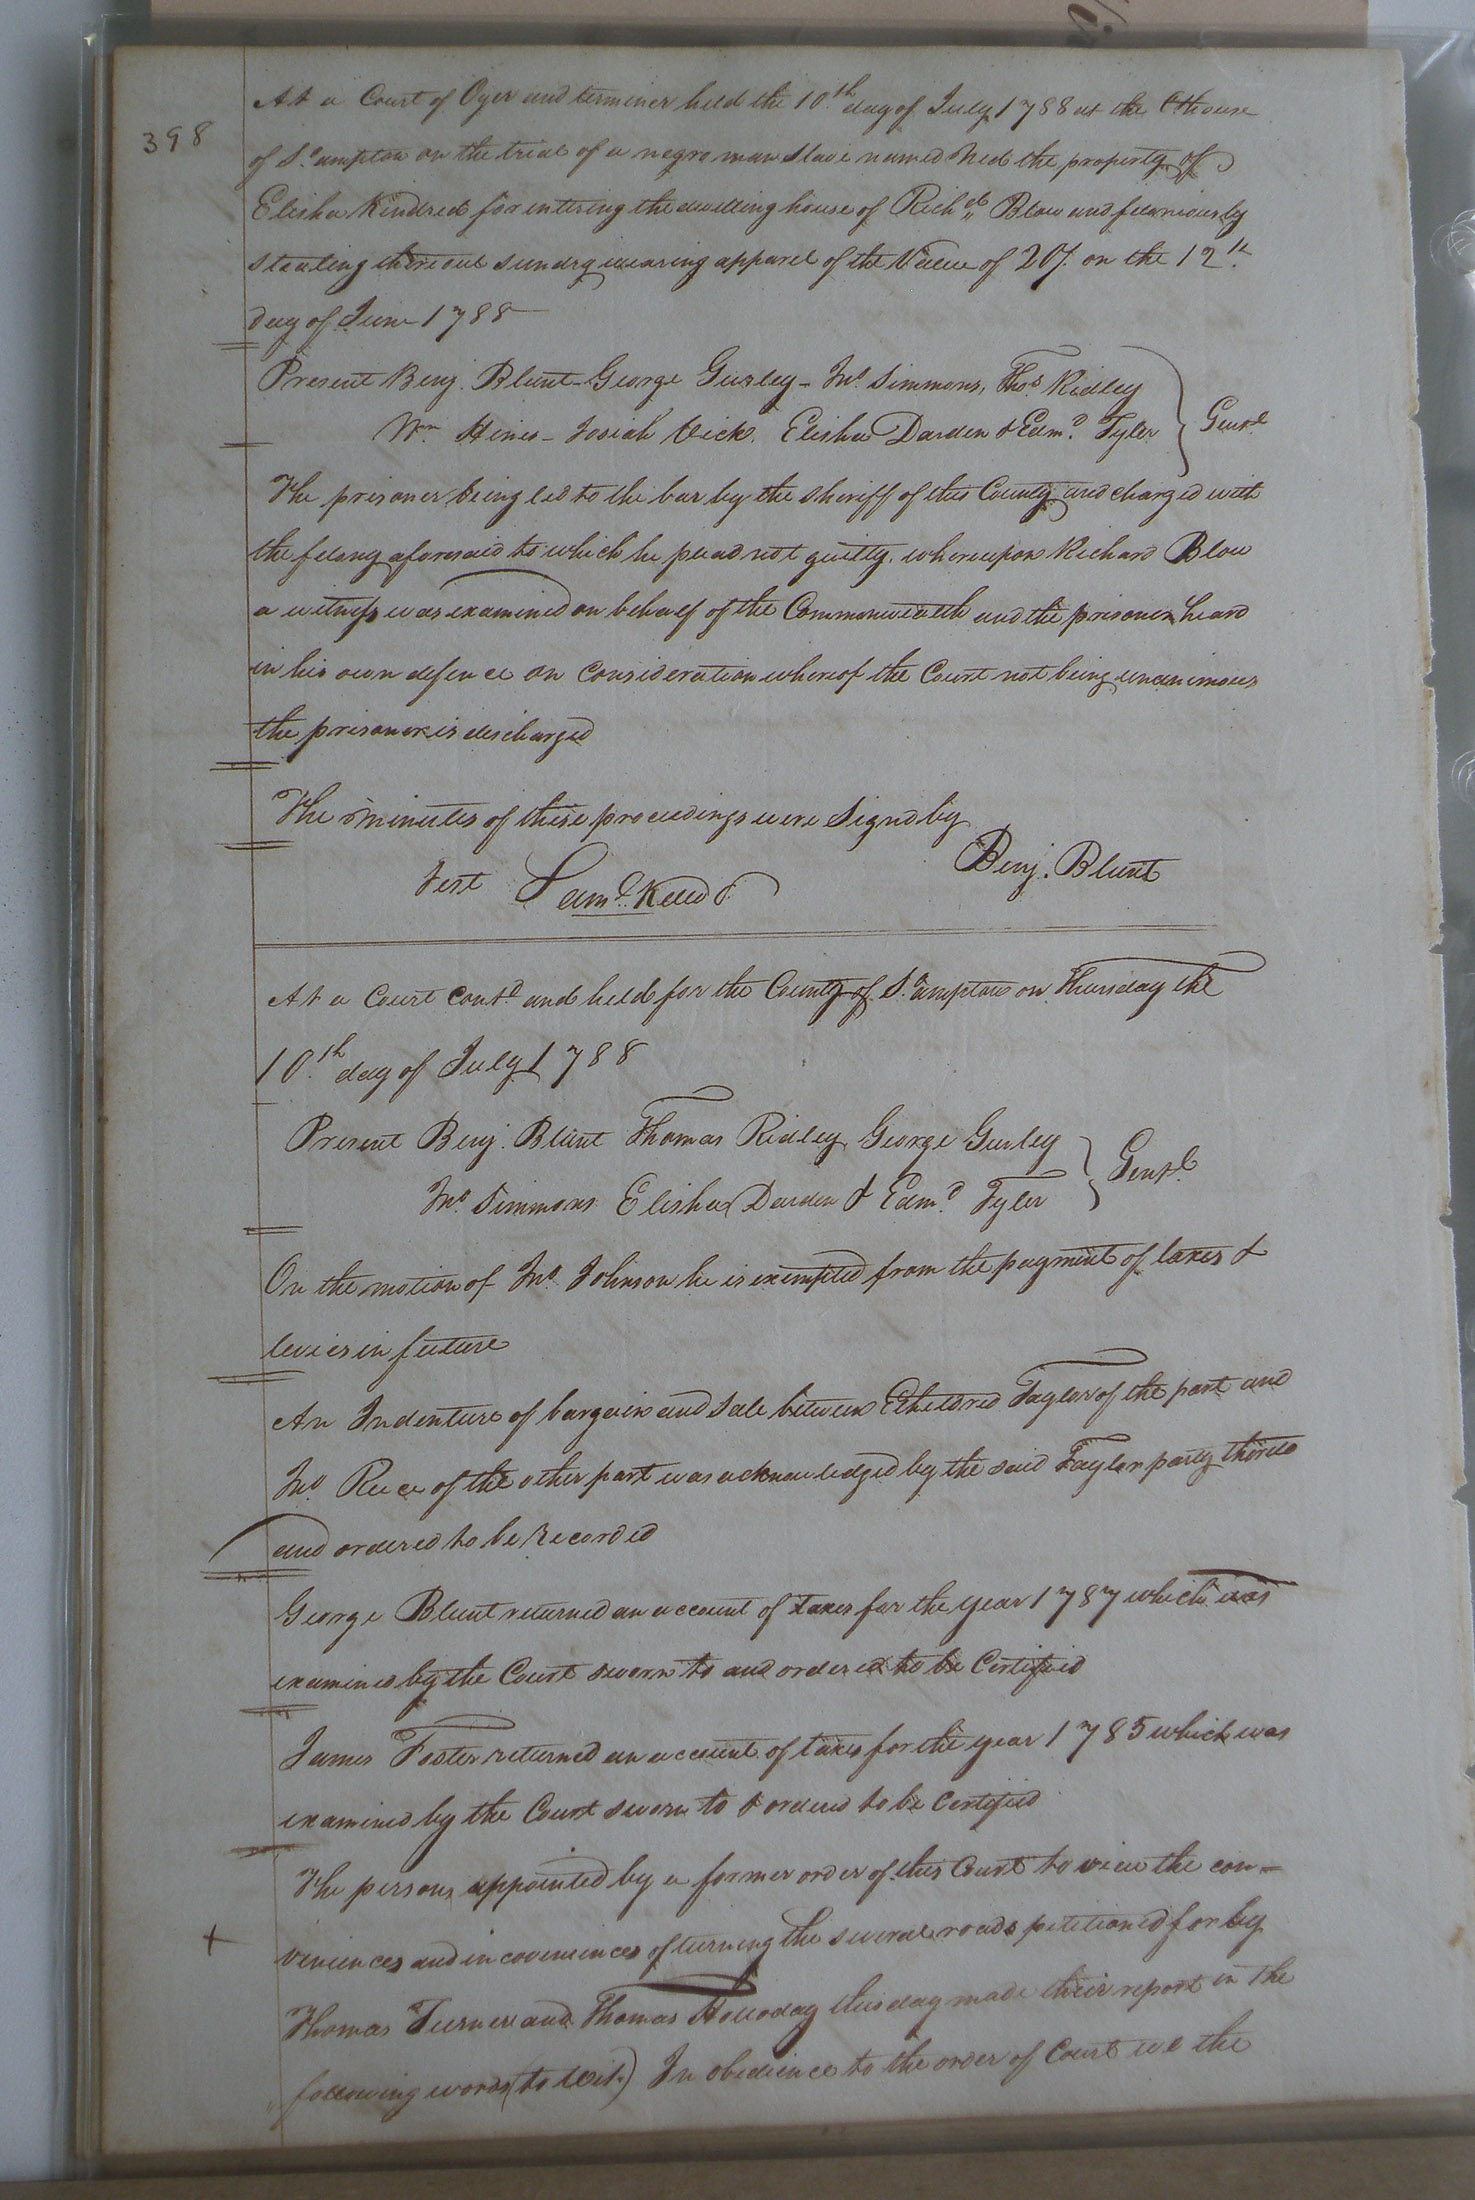 398
At a Court of Oyer and terminer held the 10th day of July 1788 at the CtHouse
of S.ampton on the trial of a negro man slave named Ned the property of
Elisha Kindred for entering the dwelling house of Richd. Blow and feloniously
stealing thereout sundry wearing apparel of the Value of 20/. on the 12th
day of June 1788
Present Benj. Blunt - George Gurley - Jno. Simmons, Thos. Ridley
Wm Hines - Josiah Vick, Elisha Darden & Edmd. Tyler } Gentl.
The prisoner being led to the bar by the sheriff of this County and charged with
the felony aforesaid to which he plead not guilty, whereupon Richard Blow
a witness was examined on behalf of the Commonwealth and the prisoner heard
in his own defence on Consideration whereof the Court not being unanimous
the prisoner is discharged
The minutes of these proceedings were Signd by
Benj. Blunt
Test Saml. Kello
At a Court Contd and held for the County of S.ampton on Thursday the
10th day of July 1788
Present Benj. Blunt Thomas Ridley George Gurley
Jno. Simmons Elisha Darden & Edmd. Tyler } Gentl.
On the motion of Jno. Johnson he is exempted from the payment of taxes &
levies in future
An Indenture of bargain and Sale between Etheldred Taylor of the part and
Jno. Reece of the other part was acknowledged by the said Taylor party thereto
and ordered to be Recorded
George Blunt returned an account of taxes for the year 1787 which was
examined by the Court sworn to and ordered to be Certified
James Foster returned an account of taxes for the year 1785 which was
examined by the Court sworn to & ordered to be Certified
The persons appointed by a former order of this Court to view the con=
+ veniences and incoveniences of turning the several roads petitioned for by
Thomas Turner and Thomas Holloday this day made their report in the
following words (to wit.) In obedience to the order of Court we the